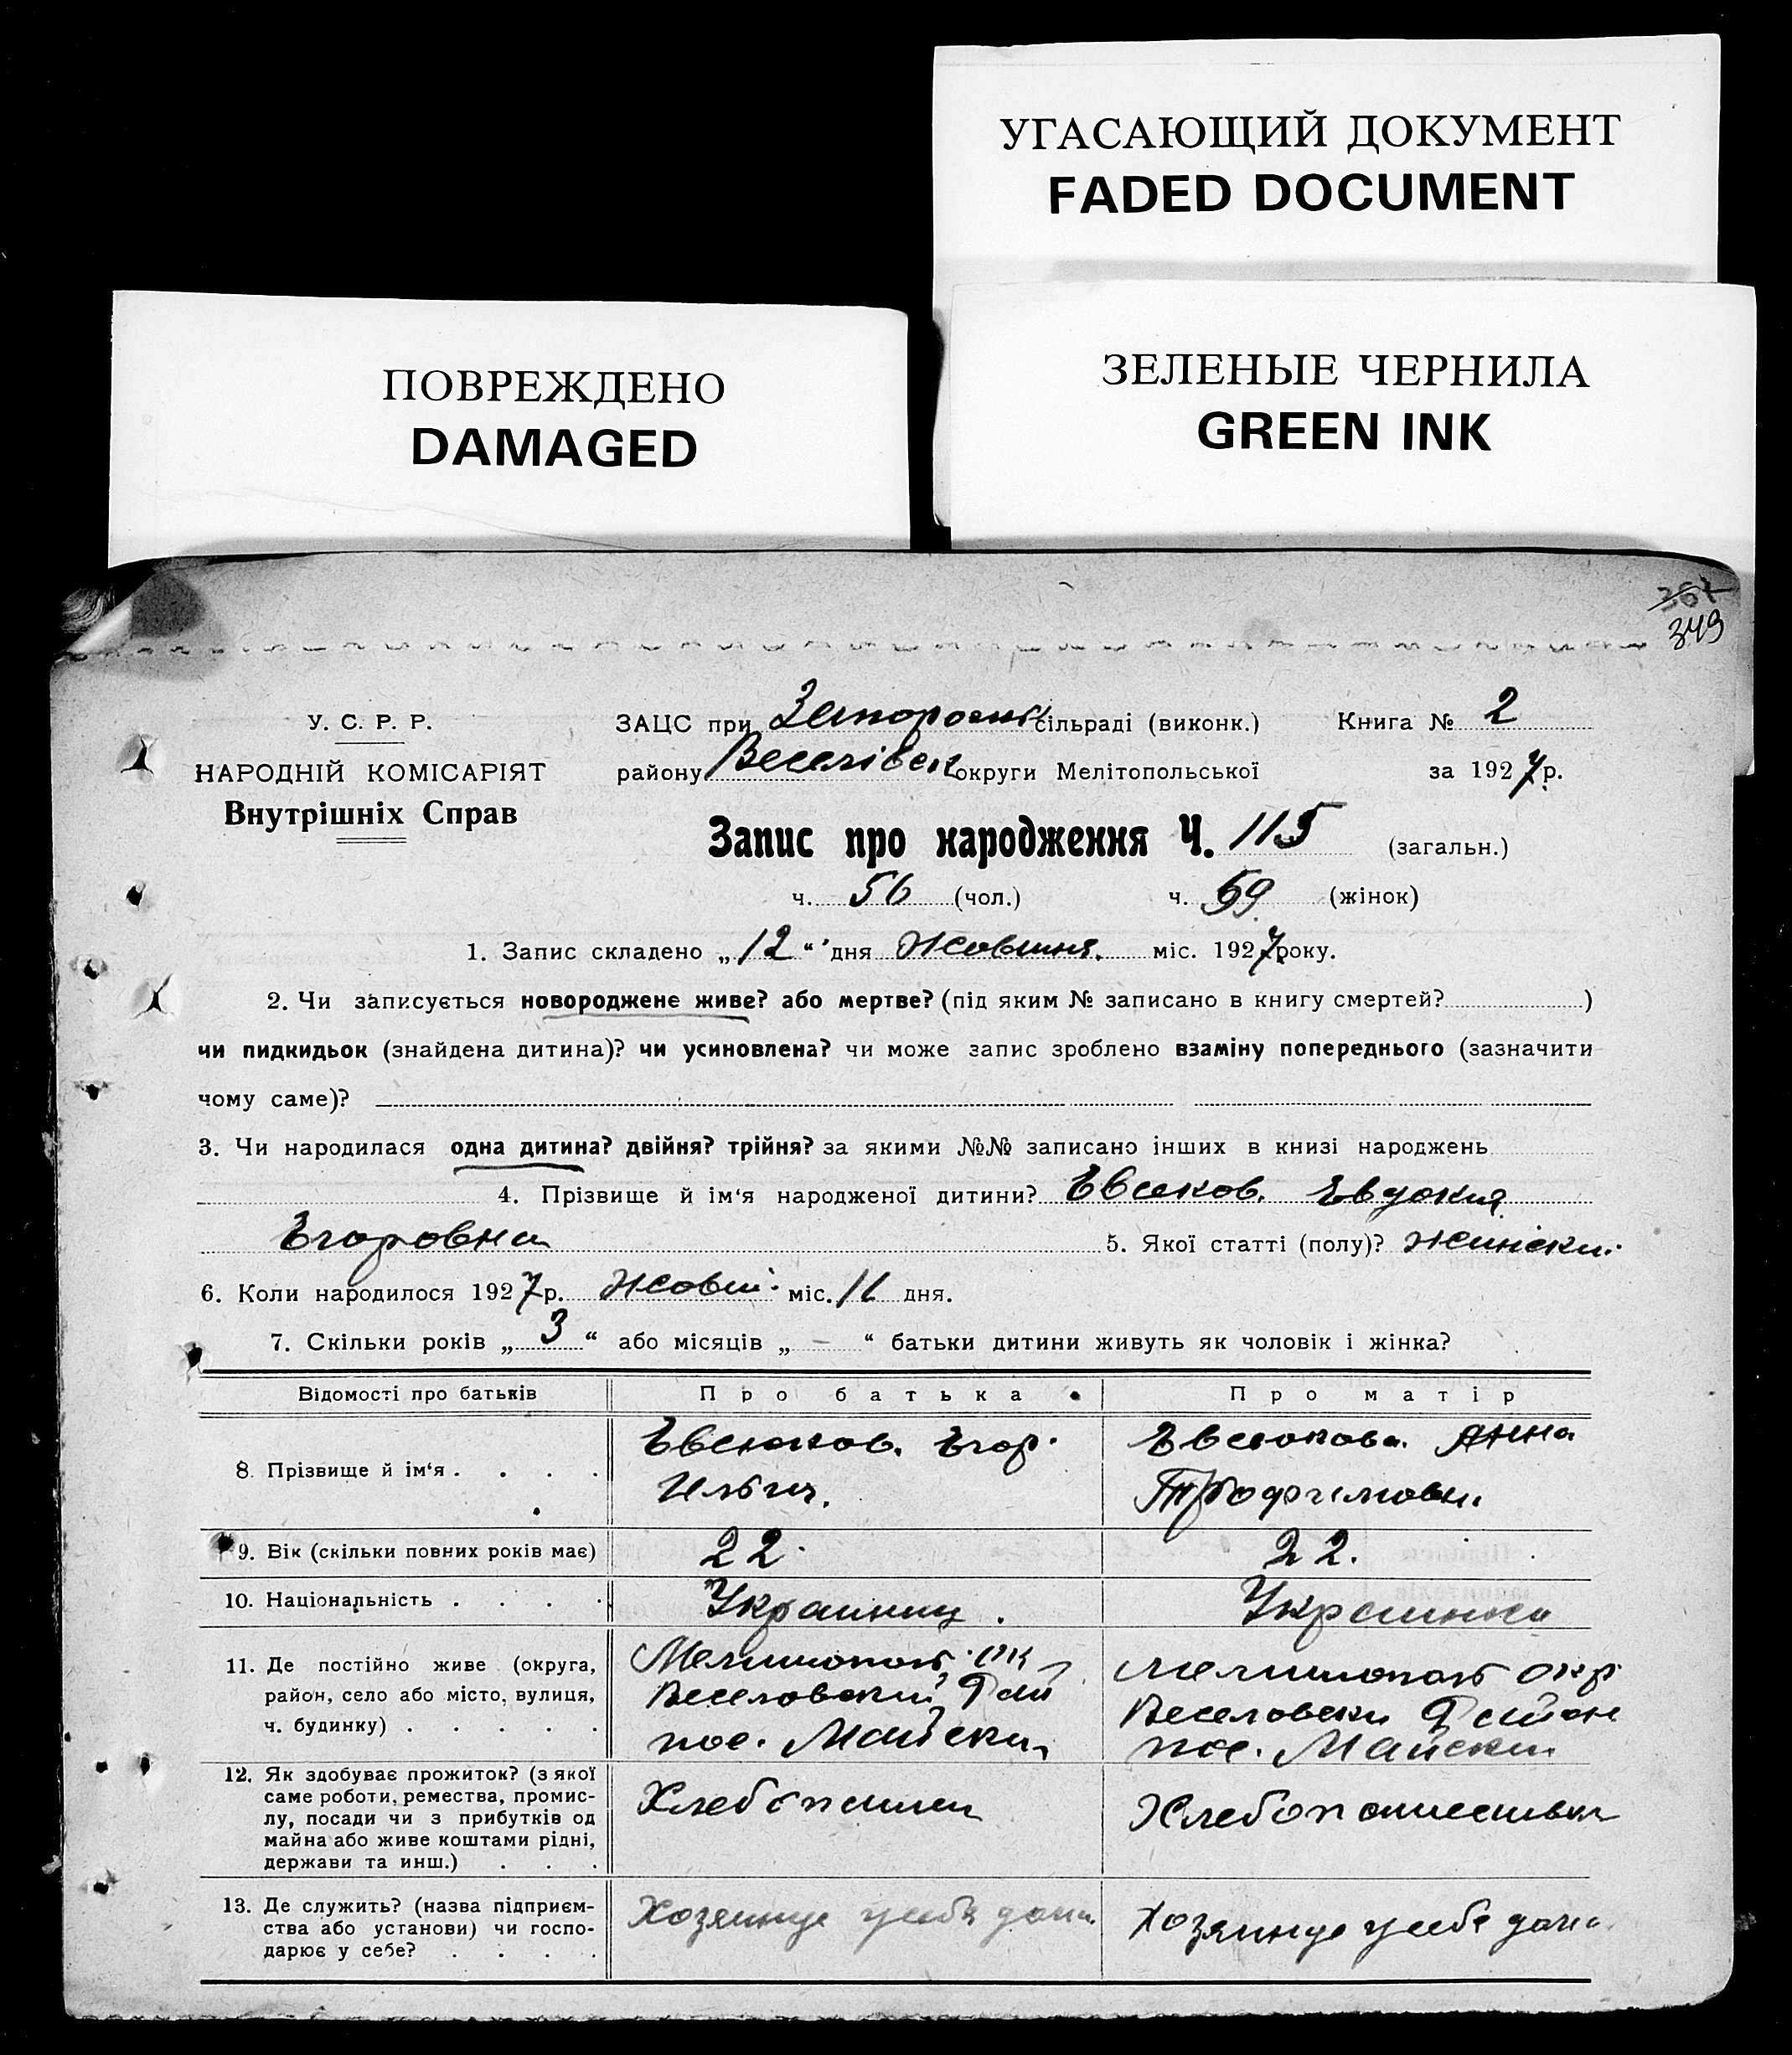 УГАСАЮЩИЙ ДОКУМЕНТ
FADED DOCUMENT
ПОВРЕЖДЕНО
DAMAGED
ЗЕЛЕНЫЕ ЧЕРНИЛА
GREEN INK
367
349
У. С. Р. Р.
НАРОДНІЙ КОМІСАРІЯТ
Внутрішніх Справ
ЗАЦС при сільраді (виконк.) Книга № 2
району Веселівск округи Мелітопольської за 1927 р.
Запис про народження Ч. 115 (загальн.)
ч. 56 (чол.) ч. 59 (жінок)
1. Запис складено „12“ дня Жовтня міс. 1927 року.
2. Чи записується новороджене живе? або мертве? (під яким № записано в книгу смертей? )
чи пидкидьок (знайдена дитина)? чи усиновлена? чи може запис зроблено взаміну попереднього (зазначити
чому саме)?
3. Чи народилася одна дитина? двійня? трійня? за якими №№ записано інших в книзі народжень
4. Прізвище й ім‘я народженої дитини? Евсюков. Евдокия
Егоровна 5. Якої статті (полу)? жинский
6. Коли народилося 1927 р. Жовт. міс. 11 дня.
7. Скільки років „3“ або місяців „–“ батьки дитини живуть як чоловік і жінка?
Відомості про батьків Про батька Про матір
8. Прізвище й ім‘я . . . .
Евсюков. Егор.
Ильич.
Евсюкова. Анна
Трофимовн.
9. Вік (скільки повних років має) 22. 22.
10. Національність . . . . Украинец. Украинка
11. Де постійно живе (округа,
район, село або місто, вулиця,
ч. будинку) . . . . .
Мелитопол. ок
Веселовский Рай
пос. Майски
Мелитопол окр.
Веселовски Район
пос. Майски
12. Як здобуває прожиток? (з якої
саме роботи, ремества, промис-
лу, посади чи з прибутків од
майна або живе коштами рідні,
держави та инш.) . . .
Хлебопашец
Хлебопашества
13. Де служить? (назва підприєм-
ства або установи) чи госпо-
дарює у себе? . . . .
Хозяинуе у себя дома
Хозяинуе у себе дома